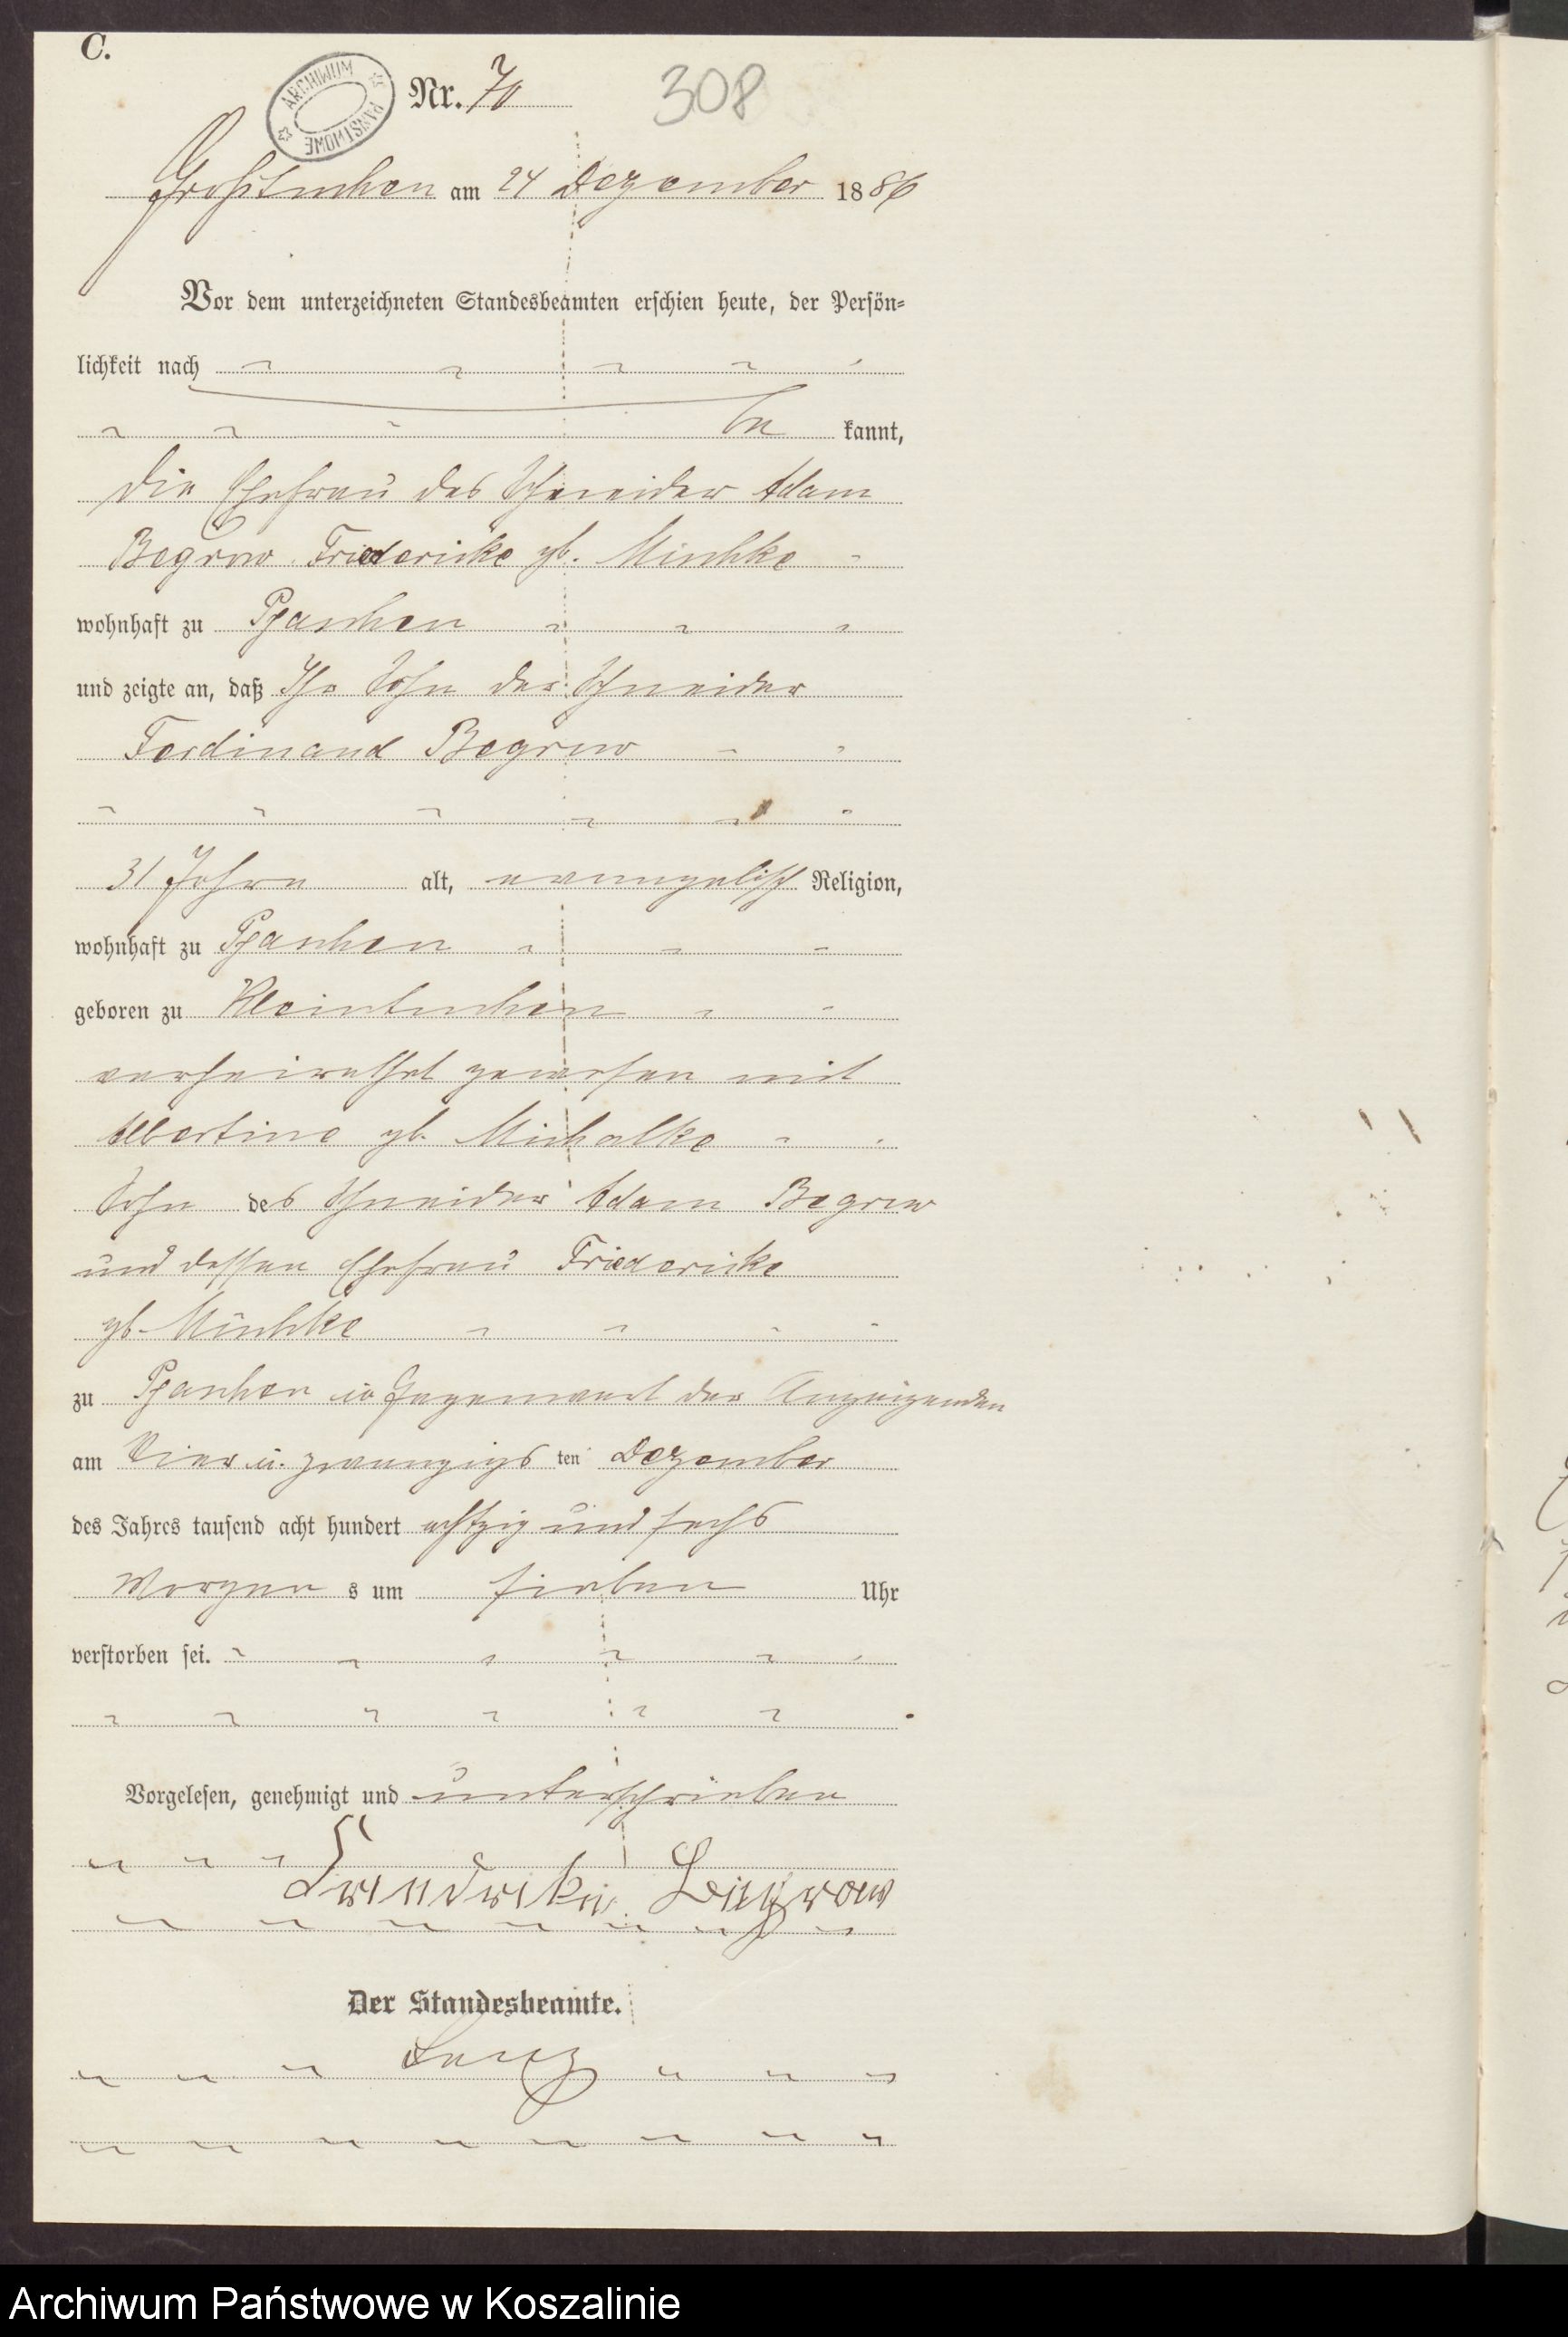 C.
ARCHIWUM PAŃSTWOWE
Nr. 70
308
Großtuchen am 24 Dezember 1886
Vor dem unterzeichneten Standesbeamten erschien heute, der Persön-
lichkeit nach
be kannt,
die Ehefrau des Schneider Adam
Begrow Friedericke gb. Mischke
wohnhaft zu Pyaschen
und zeigte an, daß Ihr Sohn der Schneider
Ferdinand Begrow
31 Jahre alt, evangelisch Religion,
wohnhaft zu Pyaschen
geboren zu Kleintuchen
verheirathet gewesen mit
Albertine gb. Michalke
Sohn des Schneider Adam Begrow
und dessen Ehefrau Friedericke
gb. Mischke
zu Pyaschen in Gegenwart der Anzeigenden
am Vier u. zwanzigs ten Dezember
des Jahres tausend acht hundert achtzig und sechs
Morgen s um sieben Uhr
verstorben sei.
Vorgelesen, genehmigt und unterschrieben
Begrow
Der Standesbeamte.
Archiwum Państwowe w Koszalinie